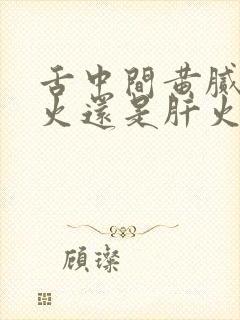 舌中間黃膩
火還是肝火
顧璨